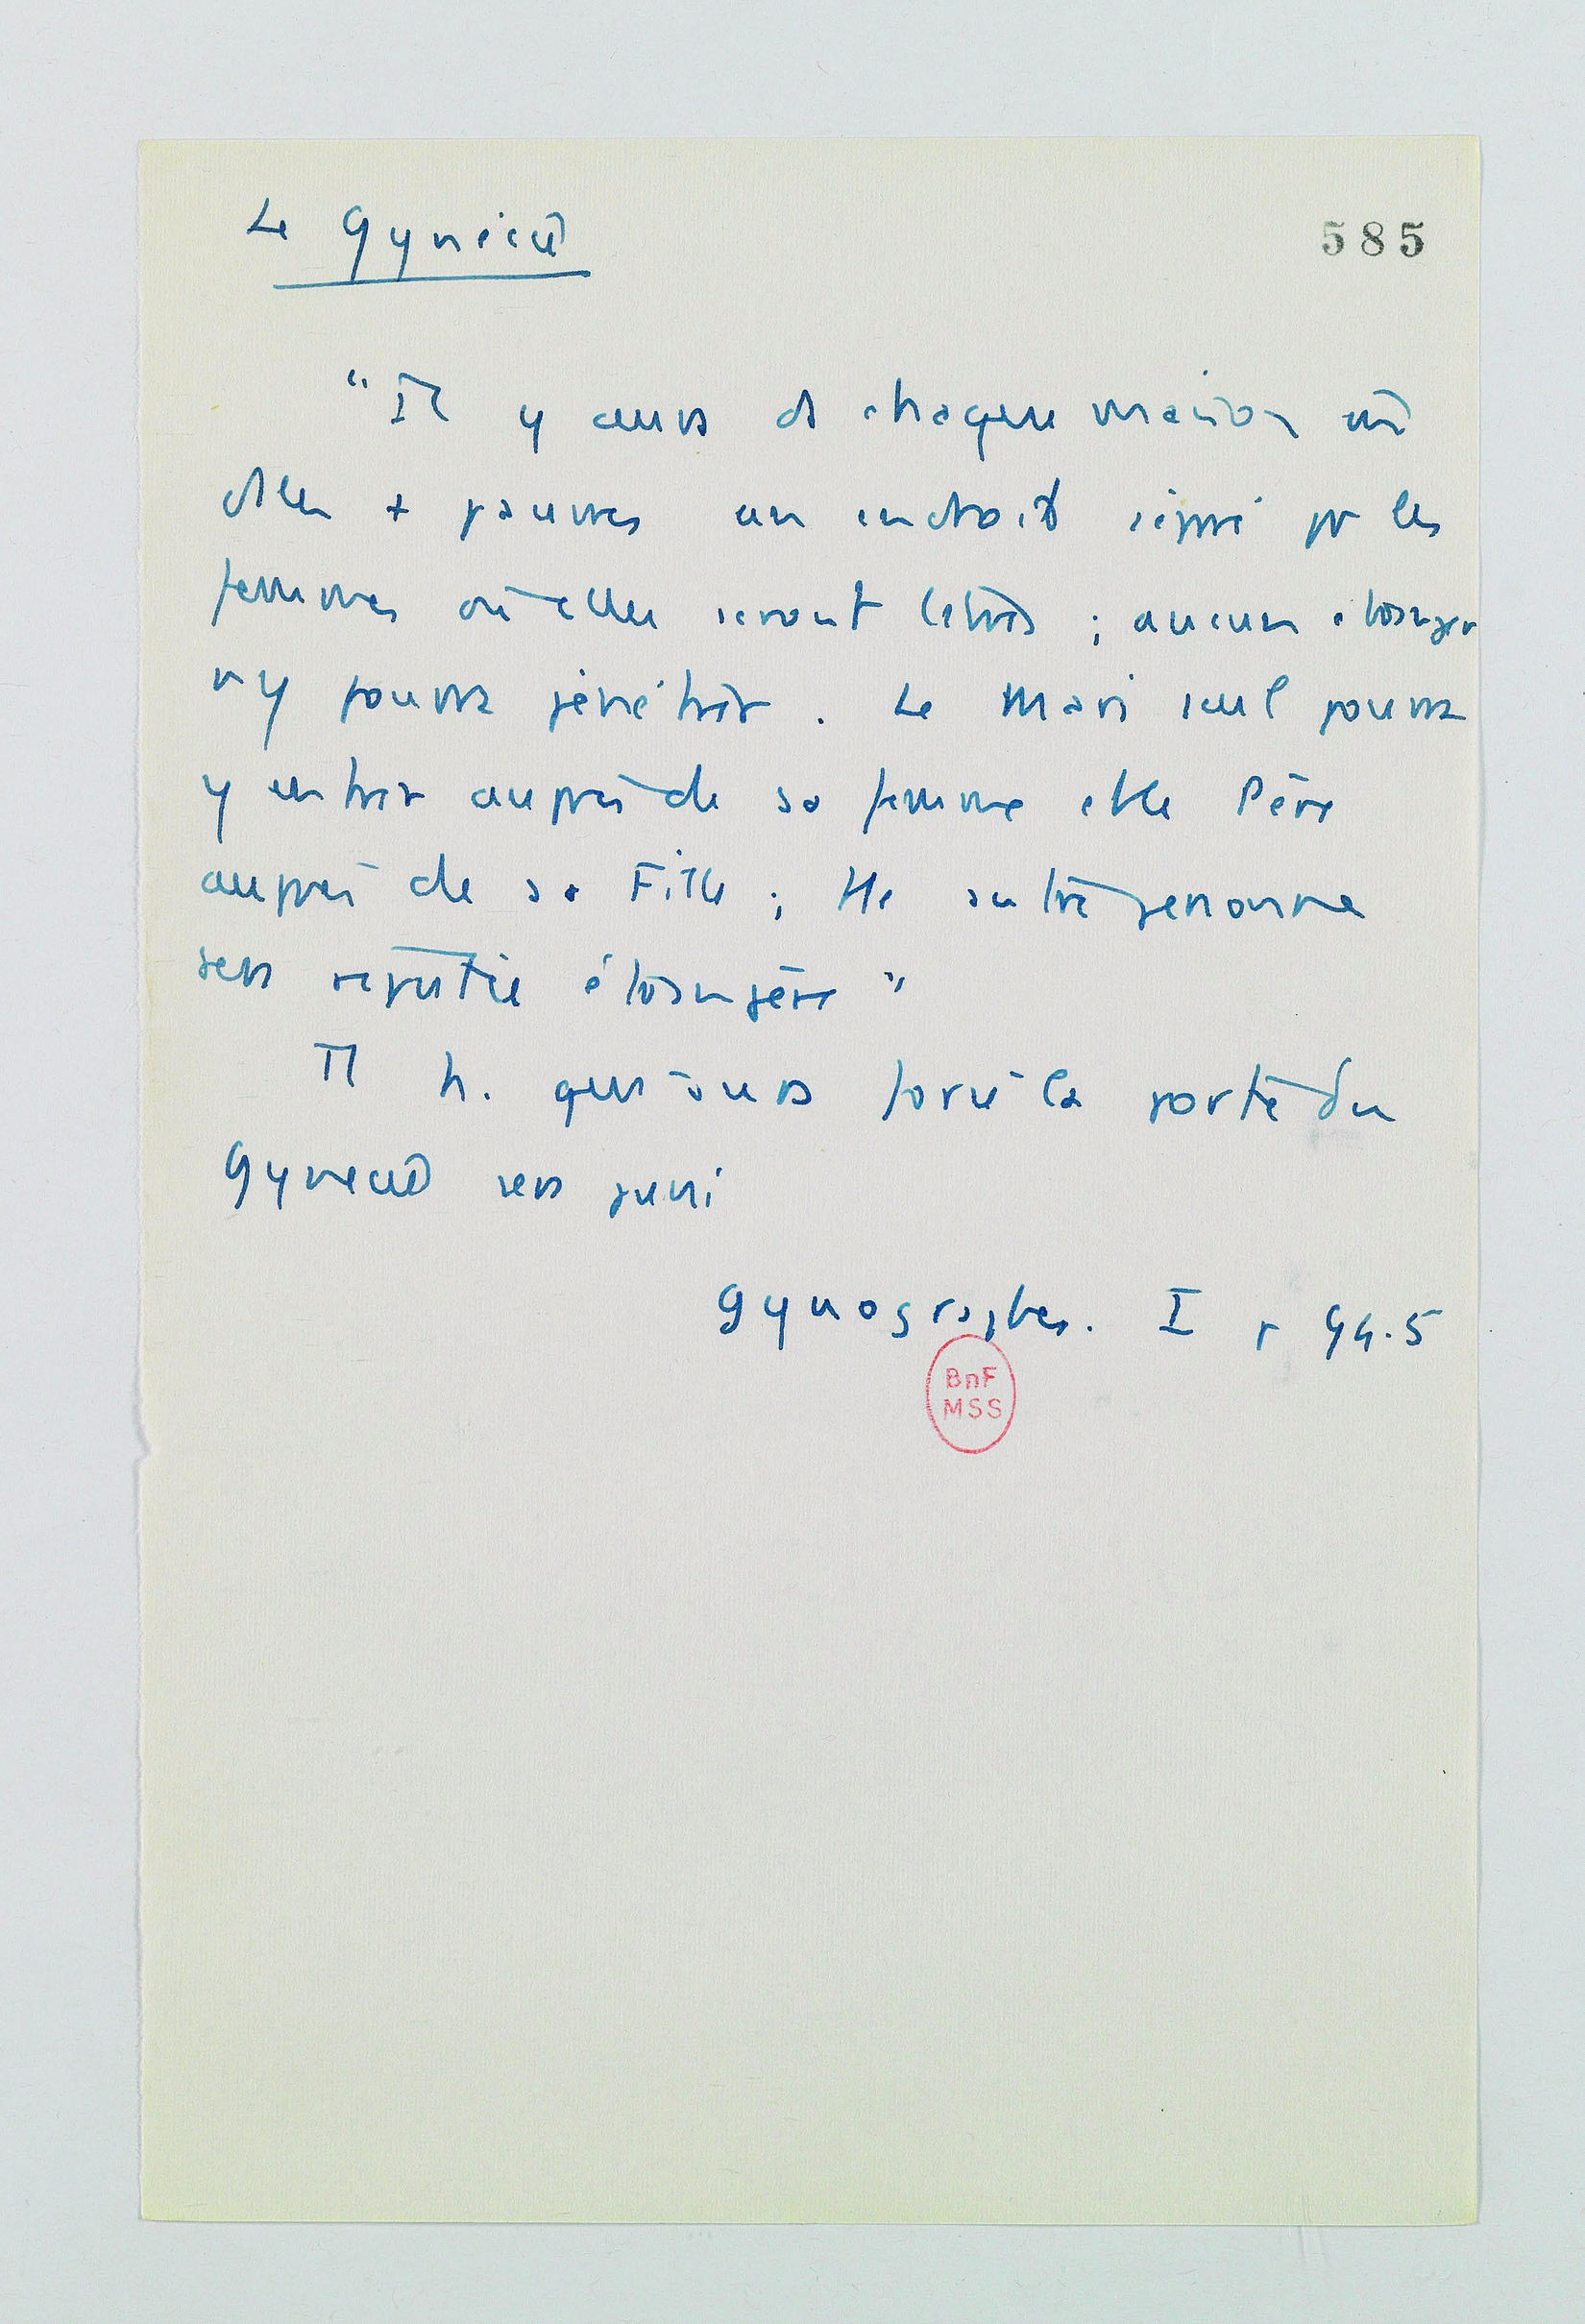 Le Gynécée
585
"Il y aura ds chaque maison même
des + pauvres un endroit séparé pr les
femmes où elles seront libres ; aucun étranger
n'y pourra pénétrer. Le Mari seul pourra
y entrer auprès de sa femme et le Père
auprès de sa Fille ; tte autre personne
sera réputée étrangère"
Tt h. qui aura forcé la porte du
Gynécée sera puni
Gynographes. I p 94.5
BnF
MSS